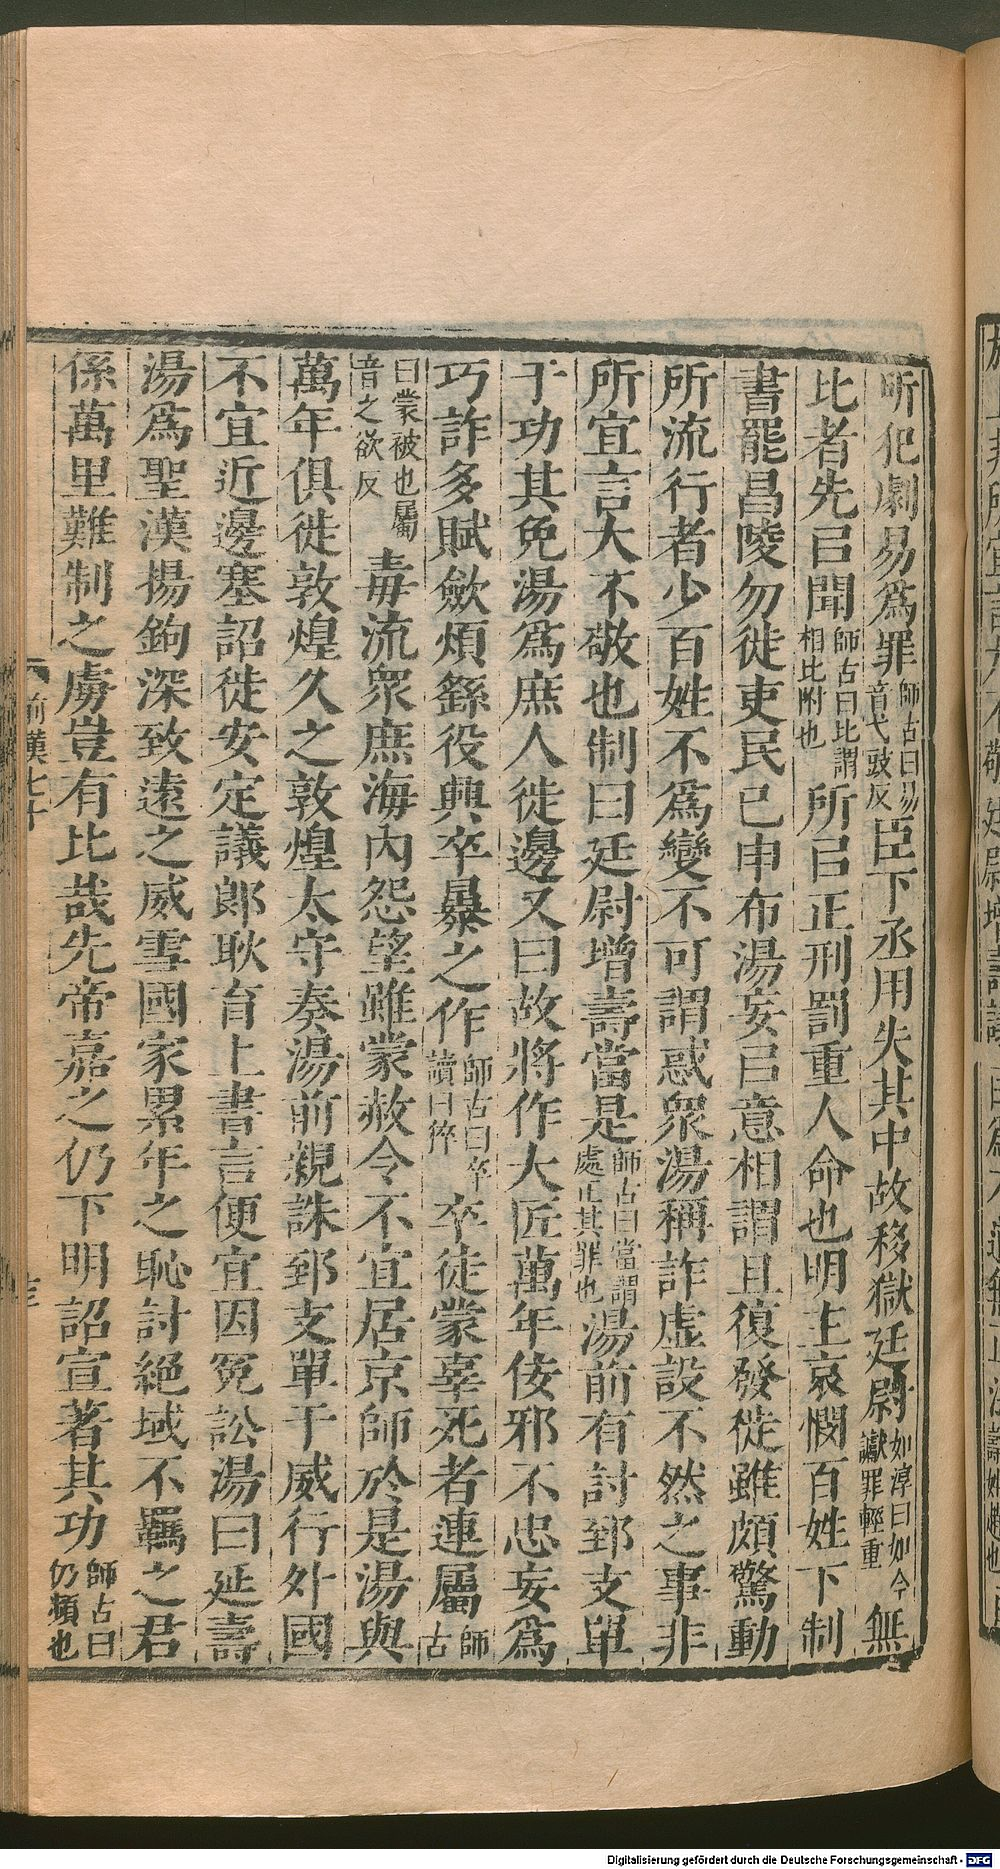 所犯劇易爲罪師古曰易音弋豉反臣下丞用失其中故移獄廷尉如淳曰如今讞罪輕重無
比者先㠯聞師古曰比謂相比附也所㠯正刑罰重人命也明主哀憫百姓下制
書罷昌陵勿徙吏民已申布湯妄㠯意相謂且復發徙雖頗驚動
所流行者少百姓不爲變不可謂惑衆湯稱詐虛設不然之事非
所宜言大不敬也制曰廷尉增壽當是師古曰當謂處正其罪也湯前有討郅支單
于功其免湯爲庶人徙邊又曰故將作大匠萬年佞邪不忠妄爲
巧詐多賦斂煩繇役興卒暴之作師古曰卒讀曰猝卒徒蒙辜死者連屬師古
曰蒙被也屬音之欲反毒流衆庶海內怨望雖蒙赦令不宜居京師於是湯與
萬年俱徙敦煌久之敦煌太守奏湯前親誅郅支單于威行外國
不宜近邊塞詔徙安定議郎耿育上書言便宜因冤訟湯曰延壽
湯爲聖漢揚鉤深致遠之威雪國家累年之恥討絕域不羈之君
係萬里難制之虜豈有比哉先帝嘉之仍下明詔宣著其功師古曰仍頻也
前漢七十
Digitalisierung gefördert durch die Deutsche Forschungsgemeinschaft - DFG